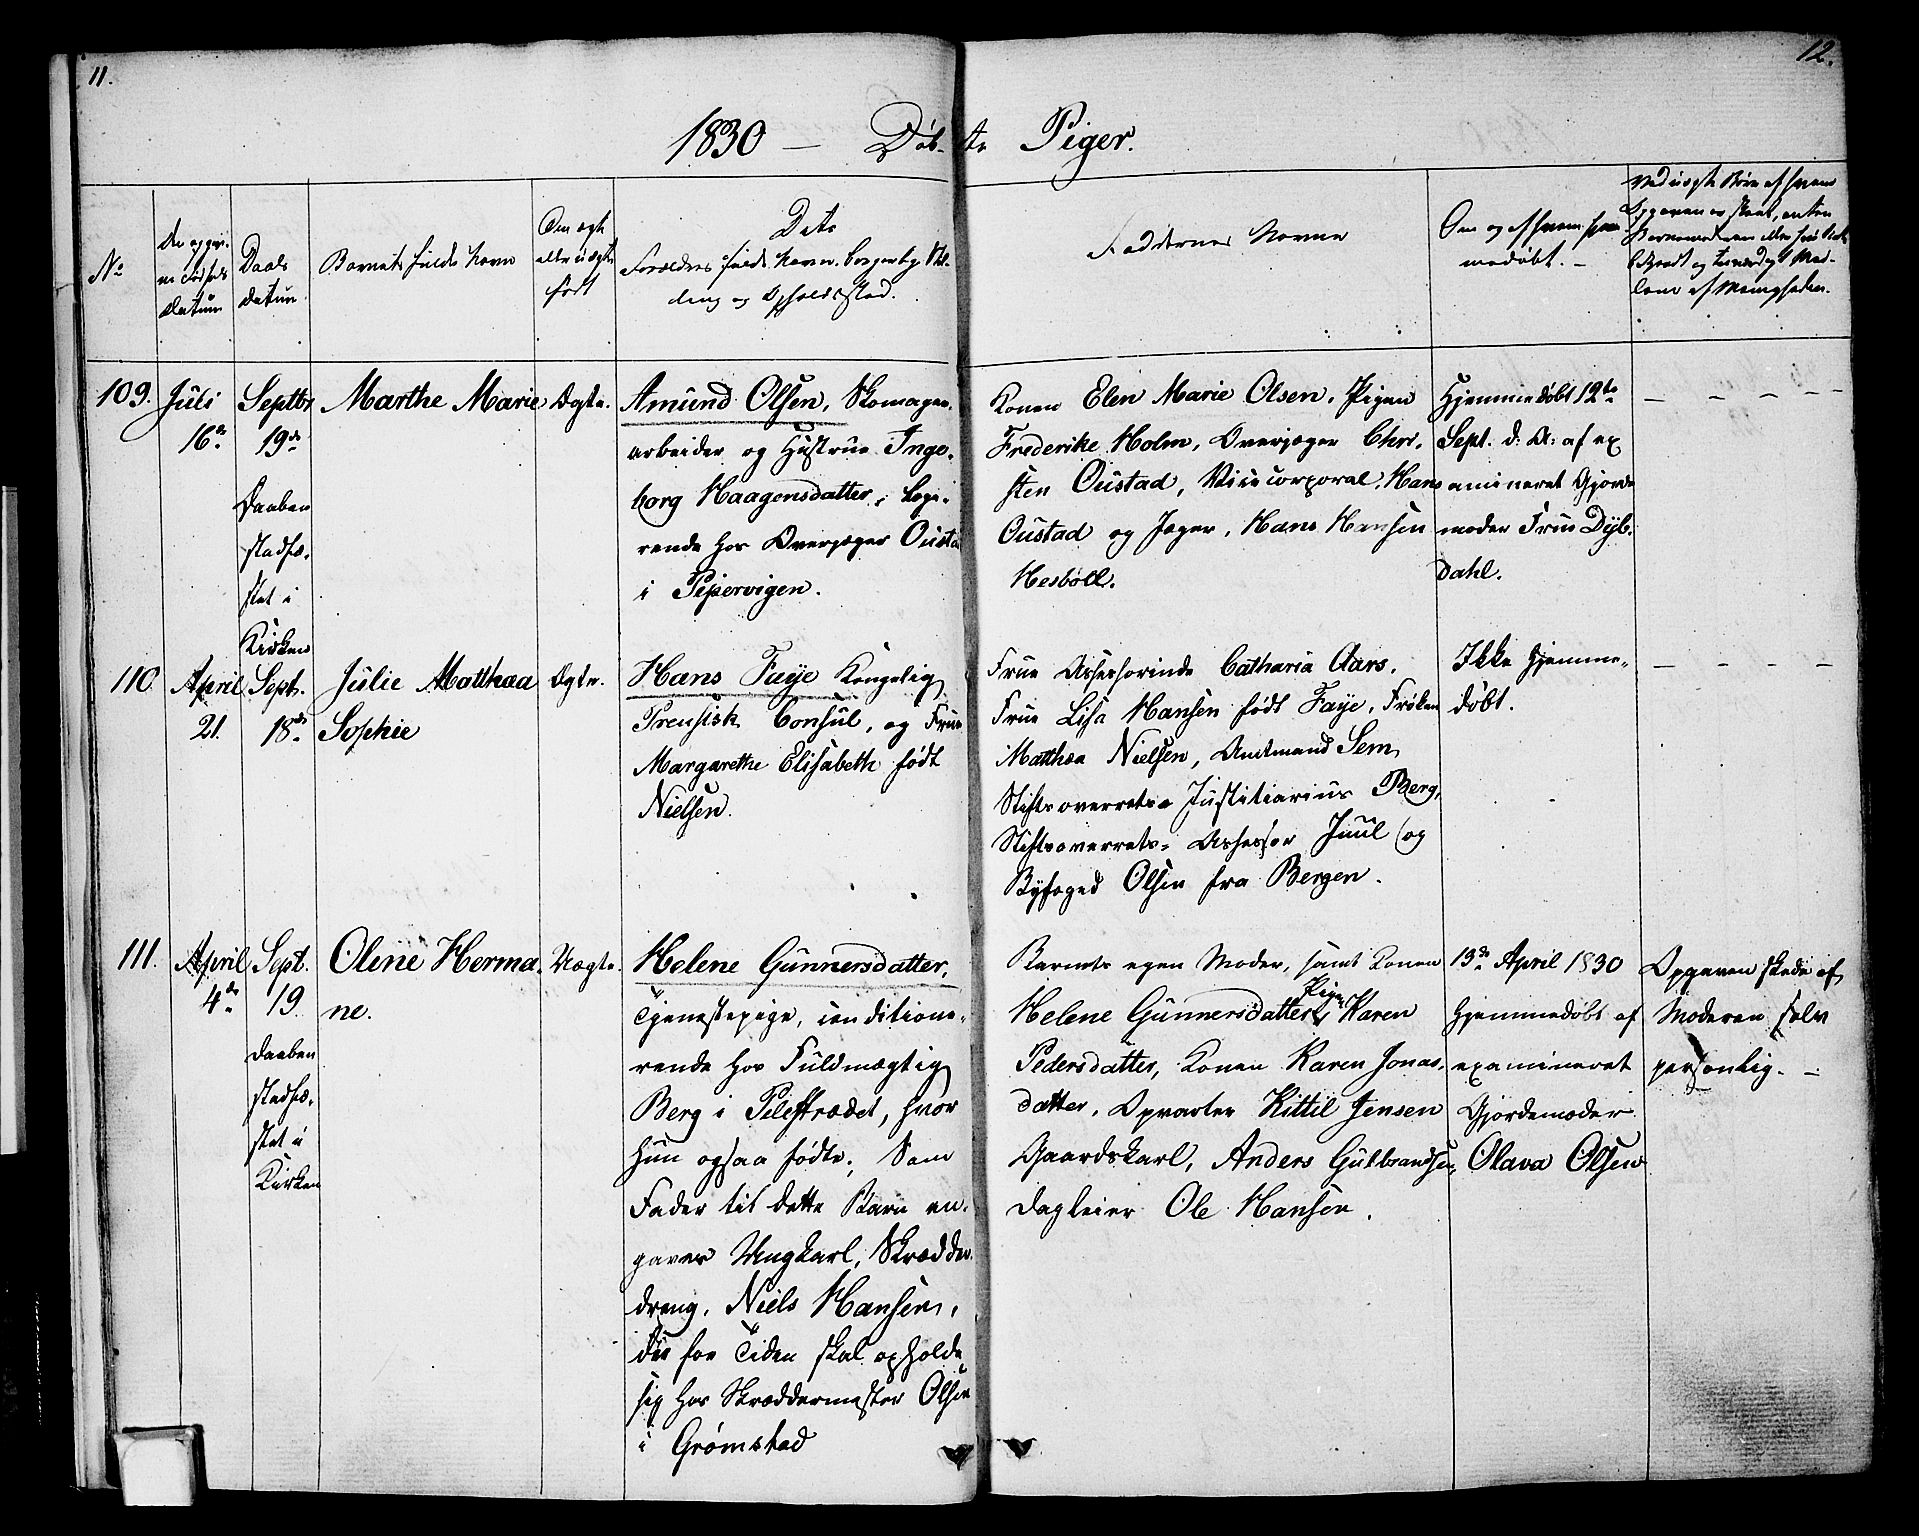 11.
12.
1830 — Døb-te Piger.
No
De opgiv-
ne Fødsels
Datum
Daabs
Datum.
Barnets fulde Navn
Om ægte
eller uægte
født
Dets
Forældres fulde Navn, borgerlig Stil-
ling og Opholdssted.
Faddernes Navne
Om og af hvem hjem-
medøbt. —
Ved uægte Børn af hvem
Opgaven er skeet, enten
Barnemoderen eller
bekjendt og troværdigt Med-
lem af Menigheden.
109.
Juli
16de
Septbr
19de
Daaben
stadfæ-
stet i
Kirken
Marthe Marie
Ægte.
Amund Olsen, Skomager-
arbeider og Hustrue Inge-
borg Haagensdatter, loge-
rende hos Overjæger Oustad
i Pipervigen.
Konen Elen Marie Olsen, Pigen
Frederike Holm, Overjæger Chri-
sten Oustad, Vicecorporal Hans
Oustad og Jæger, Hans Hansen
Hesböll.
Hjemmedøbt 12te
Sept. d: A: af ex
amineret Gjorde
moder Frue Dyb-
dahl.
— — — — —
110
April
21.
Sept.
18de
Julie Matthæa
Sophie
Ægte.
Hans Faye Kongelig
Preusisk Consul, og Frue
Margarethe Elisabeth født
Nielsen.
Frue Assessorinde Catharia Aars,
Frue Lisa Hansen født Faye, Frøken
Matthæa Nielsen, Amtmand Sem,
Stiftsoverrets- Justitiarius Berg,
Stiftsoverrets- Assessor Juul og
Byfoged Olsen fra Bergen.
Ikke Hjemme-
døbt.
— — — — —
111.
April
4de
Sept.
19.
Daaben
stadfæ-
stet i
Kirken
Oline Herma-
ne.
Uægte.
Helene Gunnersdatter,
Tjenestepige, conditione-
rende hos Fuldmægtig
Berg i Pilestrædet, hvor
hun ogsaa fødte; Som
Fader til dette Barn an-
gaves Ungkarl, Skrædder-
dreng, Niels Hansen,
der for Tiden skal opholde
sig hos Skræddermester Olsen
i Grømstad
Barnets egen Moder, samt Konen
Helene Gunnersdatter, Pigen Karen
Pedersdatter, Konen Karen Jonas-
datter, Opvarter Kittil Jensen
Gaardskarl, Anders Gulbrandsen,
Dagleier Ole Hansen.
13de April 1830
Hjemmedøbt af
examineret
Gjordemoder
Olava Olsen
Opgaven skede af
Moderen selv
personlig. —